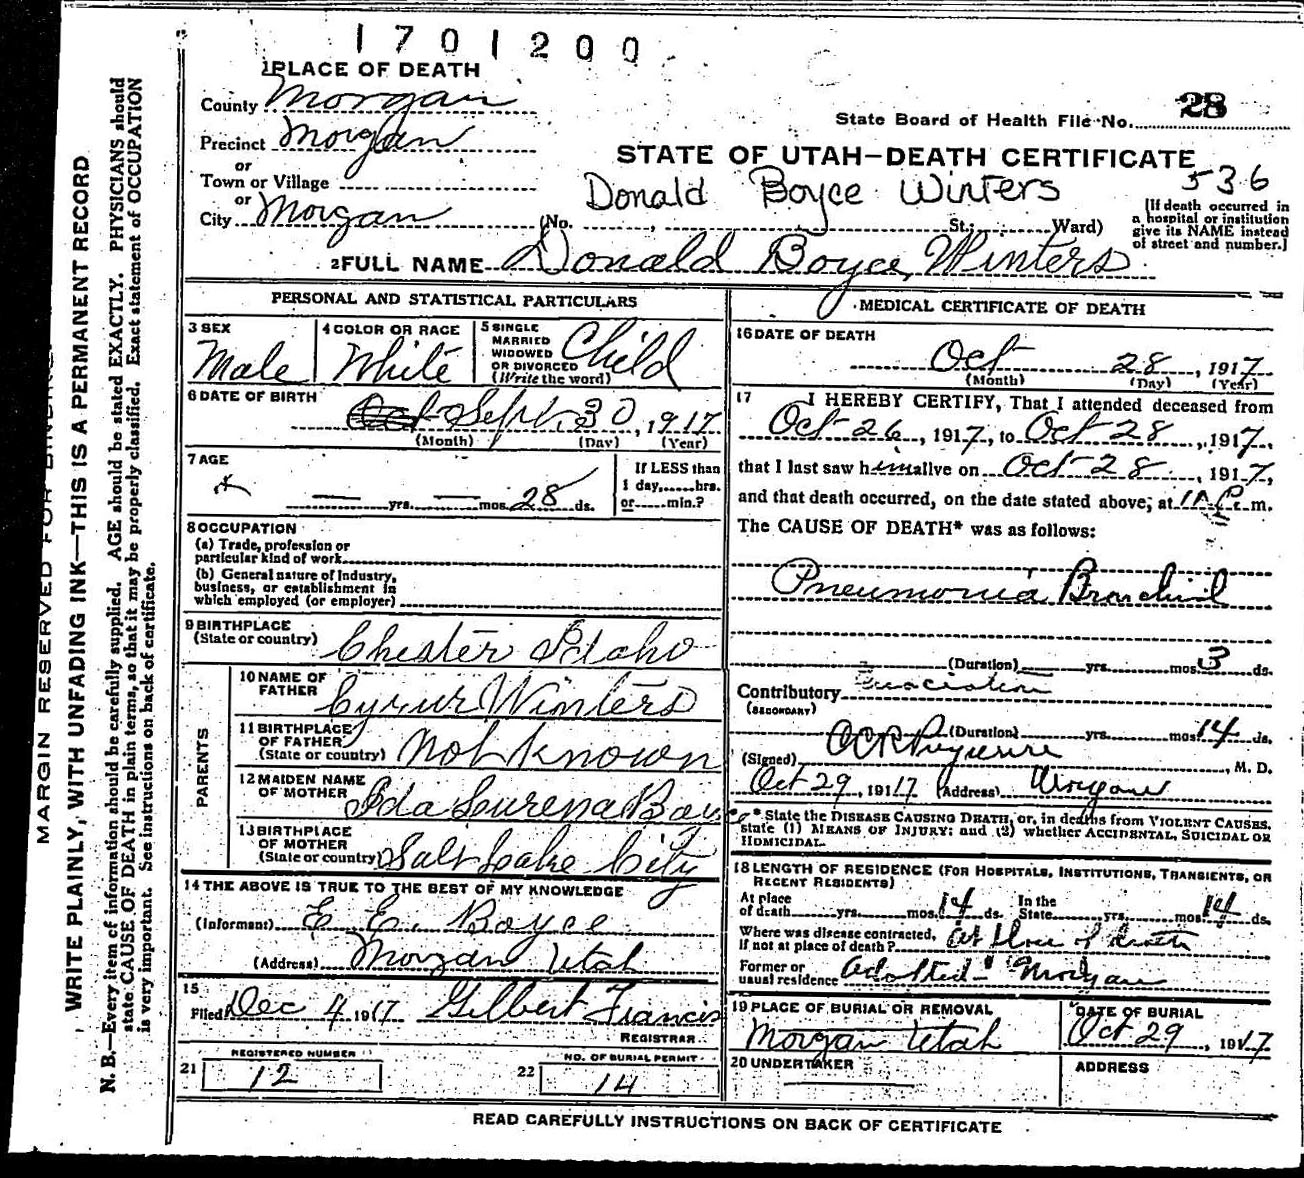 1701200
1 PLACE OF DEATH
County Morgan
28
State Board of Health File No.
Precinct Morgan
STATE OF UTAH—DEATH CERTIFICATE
or
Town or Village
Donald Boyce Winters 536
or
City Morgan (No. , St.; Ward)
[If death occurred in
a hospital or institution
give its NAME instead
of street and number.]
2 FULL NAME Donald Boyce Winters
PERSONAL AND STATISTICAL PARTICULARS
3 SEX
Male
4 COLOR OR RACE
White
5 SINGLE
MARRIED
WIDOWED
OR DIVORCED
(Write the word)
Child
6 DATE OF BIRTH
Oct Sept. 30, 1917
(Month) (Day) (Year)
7 AGE
yrs. mos. 28 ds.
If LESS than
1 day, hrs.
or min.?
8 OCCUPATION
(a) Trade, profession or
particular kind of work
(b) General nature of Industry,
business, or establishment in
which employed (or employer)
9 BIRTHPLACE
(State or country) Chester Idaho
PARENTS
10 NAME OF
FATHER Cyrus Winters
11 BIRTHPLACE
OF FATHER
(State or country) Not Known
12 MAIDEN NAME
OF MOTHER Ida Lurena Boyce
13 BIRTHPLACE
OF MOTHER
(State or country) Salt Lake City
14 THE ABOVE IS TRUE TO THE BEST OF MY KNOWLEDGE
(Informant) E. E. Boyce
(Address) Morgan Utah
15
Filed Dec 4 1917 Gilbert Francis
REGISTRAR
REGISTERED NUMBER
21 12
NO. OF BURIAL PERMIT
22 14
MEDICAL CERTIFICATE OF DEATH
16 DATE OF DEATH
Oct 28, 1917
(Month) (Day) (Year)
17 I HEREBY CERTIFY, That I attended deceased from
Oct 26, 1917, to Oct 28, 1917,
that I last saw him alive on Oct 28, 1917,
and that death occurred, on the date stated above, at m.
The CAUSE OF DEATH* was as follows:
Pneumonia Bronchial
(Duration) yrs. mos. 3 ds.
Contributory
(SECONDARY)
(Duration) yrs. mos. 14 ds.
(Signed) , M. D.
Oct 29, 1917 (Address) Morgan
* State the DISEASE CAUSING DEATH, or, in deaths from VIOLENT CAUSES,
state (1) MEANS OF INJURY; and (2) whether ACCIDENTAL, SUICIDAL OR
HOMICIDAL.
18 LENGTH OF RESIDENCE (FOR HOSPITALS, INSTITUTIONS, TRANSIENTS, OR
RECENT RESIDENTS)
At place
of death yrs. mos. 14 ds.
In the
State yrs. mos. 14 ds.
Where was disease contracted,
if not at place of death? at place of death
Former or
usual residence Adopted - Morgan
19 PLACE OF BURIAL OR REMOVAL
Morgan Utah
DATE OF BURIAL
Oct 29, 1917
20 UNDERTAKER
ADDRESS
READ CAREFULLY INSTRUCTIONS ON BACK OF CERTIFICATE
MARGIN RESERVED FOR BINDING
WRITE PLAINLY, WITH UNFADING INK—THIS IS A PERMANENT RECORD
N. B.—Every item of information should be carefully supplied. AGE should be stated EXACTLY. PHYSICIANS should
state CAUSE OF DEATH in plain terms, so that it may be properly classified. Exact statement of OCCUPATION
is very important. See instructions on back of certificate.